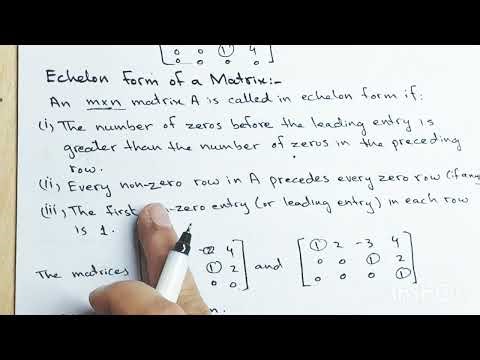 0 0 1 4
0 0 0 0
Echelon Form of a Matrix:-
An mxn matrix A is called in echelon form if:
(i) The number of zeros before the leading entry is
greater than the number of zeros in the preceding
row.
(ii) Every non-zero row in A precedes every zero row (if any
(iii) The first -zero entry (or leading entry) in each row
is 1.
-2 4 1 2 -3 4
The matrices 1 2 and 0 0 1 2
0 0 0 0 0 1